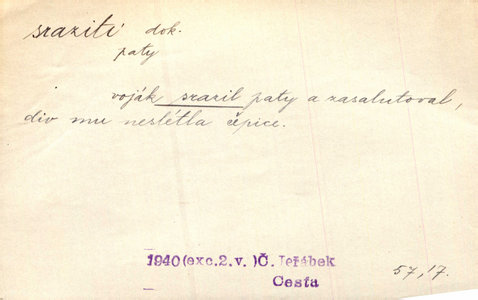 sraziti dok.
paty
voják srazil paty a zasalutoval,
div mu neslétla čepice.
1940(exc.2.v.)Č.Jeřábek
Cesta
57,17.